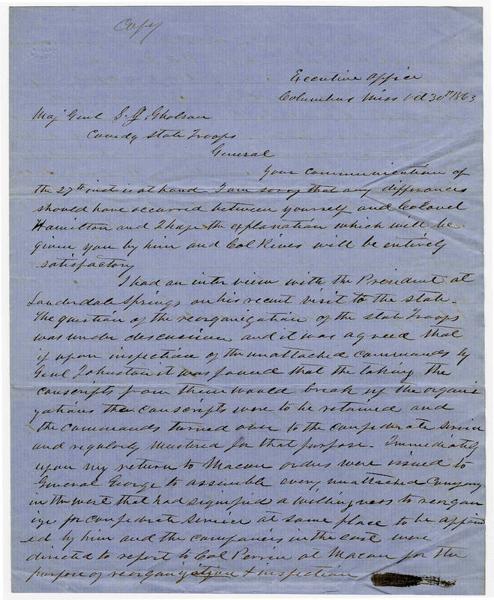 Copy
Executive Office
Columbus Miss Oct 30th 1863
Maj Genl S. J. Gholson
Comdg State Troops
General
Your communication of
the 27th inst is at hand. I am sorry that any differances
should have occurred between yourself and Colonel
Hamilton and I hope the explanation which will be
given you by him and Col Rives will be entirely
satisfactory
I had an interview with the President at
Lauderdale Springs on his recent visit to the state.
The question of the reorganization of the state Troops
was under discussion and it was agreed that
if upon inspection of the unattached commands by
Genl Johnston it was found that the taking the
conscripts from them would break up the organi
zations the conscripts were to be retained and
the commands turned over to the confederate service
and regularly mustered for that purpose. Immediately
upon my return to Macon orders were issued to
General George to assemble every unattached Company
in the west that had signified a willingness to reorgan
ize for confederate service at some place to be appoint
ed by him and the companies in the east were
directed to report to Col Perrin at Macon for the
purpose of reorganization & inspection